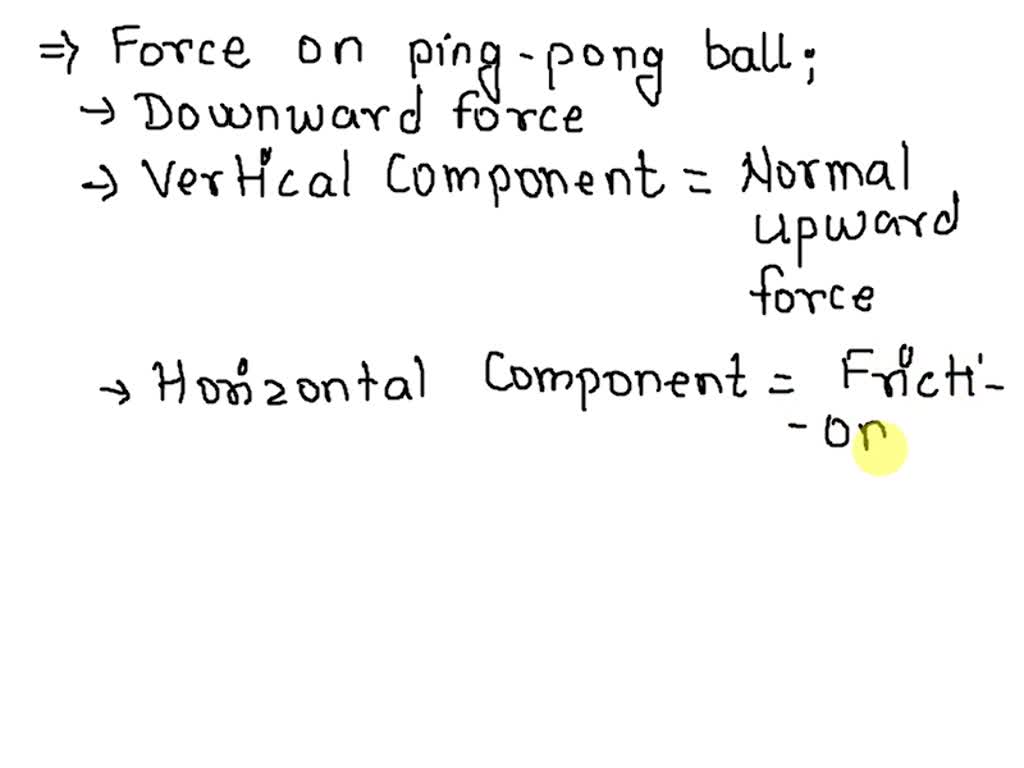 ⇒ Force on ping-pong ball;
→ Downward force
→ Vertical Component = Normal
upward
force
→ Horizontal Component = Fricti-
-on